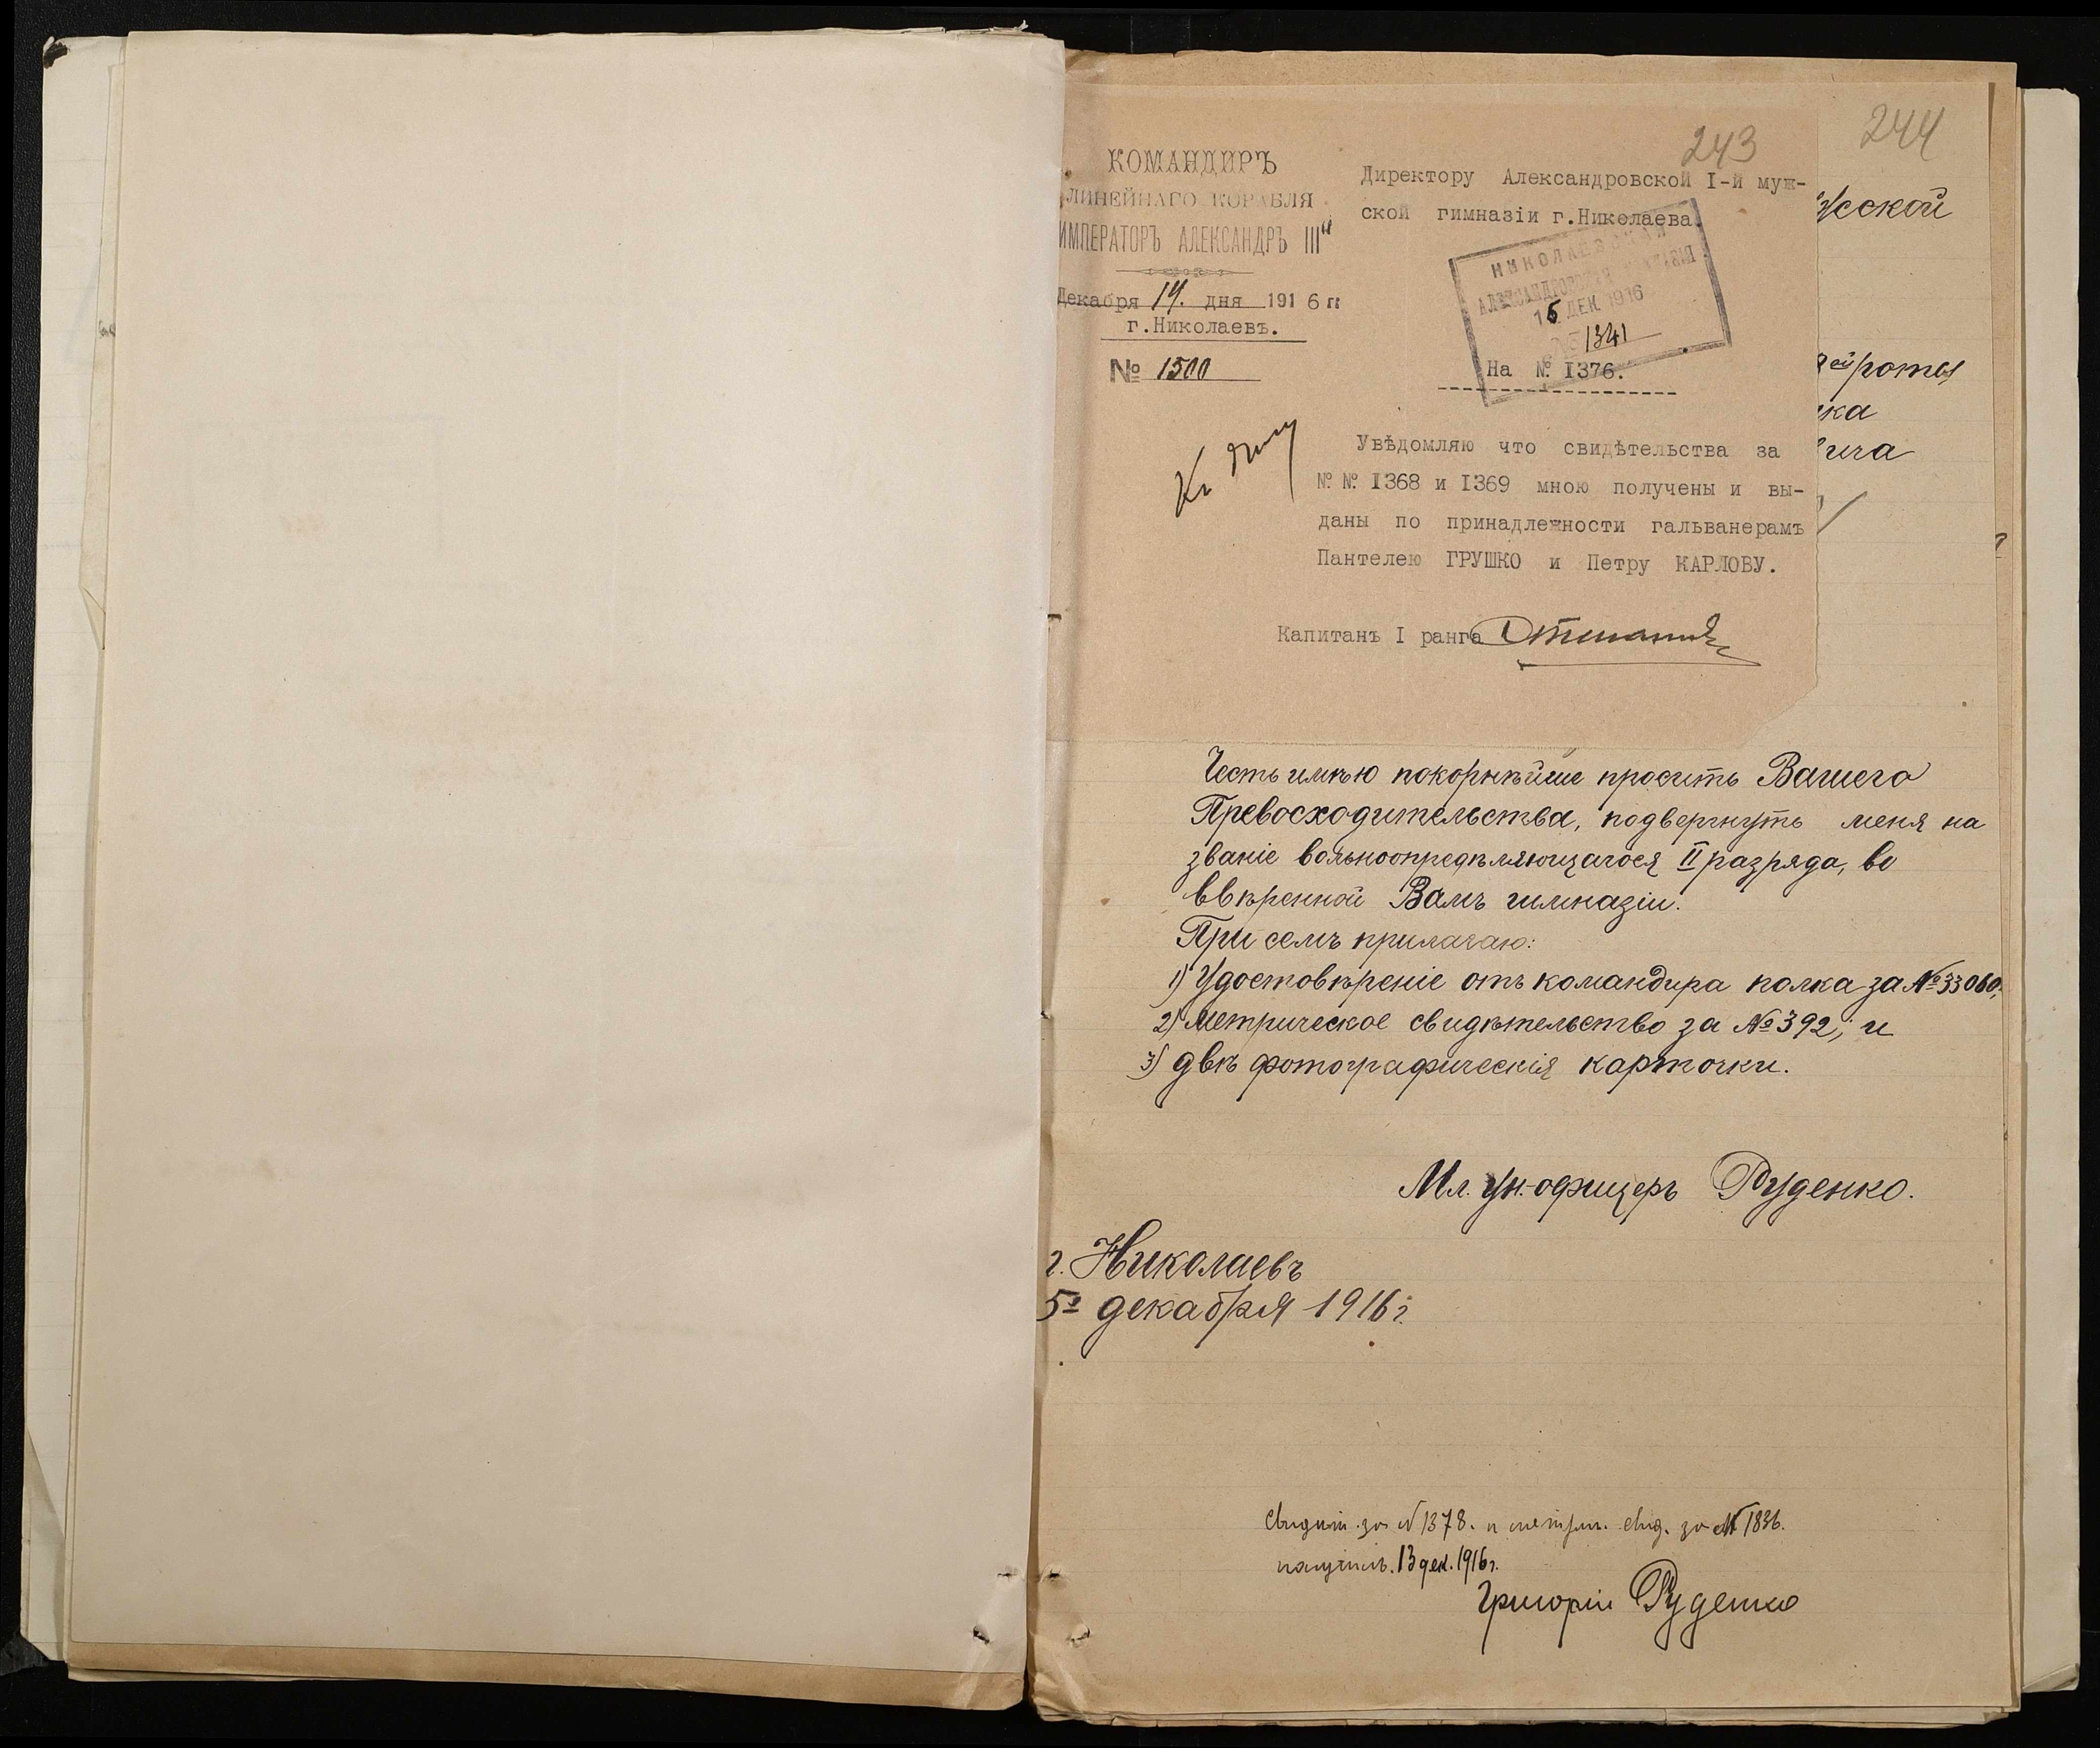 243
244
КОМАНДИРЪ
ЛИНЕЙНАГО КОРАБЛЯ
ИМПЕРАТОРЪ АЛЕКСАНДРЪ III"
Декабря 14. дня 1916 г.
г.Николаевъ.
№ 1500
Директору Александровской I-й муж-
ской гимназіи г.Николаева.
НИКОЛАЕВСКАЯ
АЛЕКСАНДРОВСКАЯ ГИМНАЗІЯ
15 ДЕК 1916
№ 1341
На № I376.
Къ дѣлу
Увѣдомляю что свидѣтельства за
№ № I368 и I369 мною получены и вы-
даны по принадлежности гальванерамъ
Пантелею ГРУШКО и Петру КАРЛОВУ.
Капитанъ I ранга
жской
роты
ка
вича
Честь имѣю покорнѣйше просить Вашего
Превосходительства, подвергнуть меня на
званіе вольноопредѣляющагося II разряда, во
ввѣренной Вамъ гимназіи.
При семъ прилагаю:
1) Удостовѣреніе отъ командира полка за № 33060;
2) Метрическое свидѣтельство за № 392; и
3) двѣ фотографическія карточки.
Мл. ун.-офицеръ Руденко.
г. Николаевъ
5го декабря 1916 г.
Свидѣт. за № 1378. и метрич. свид. за № 1836.
получилъ. 13 дек. 1916 г.
Григорій Руденко